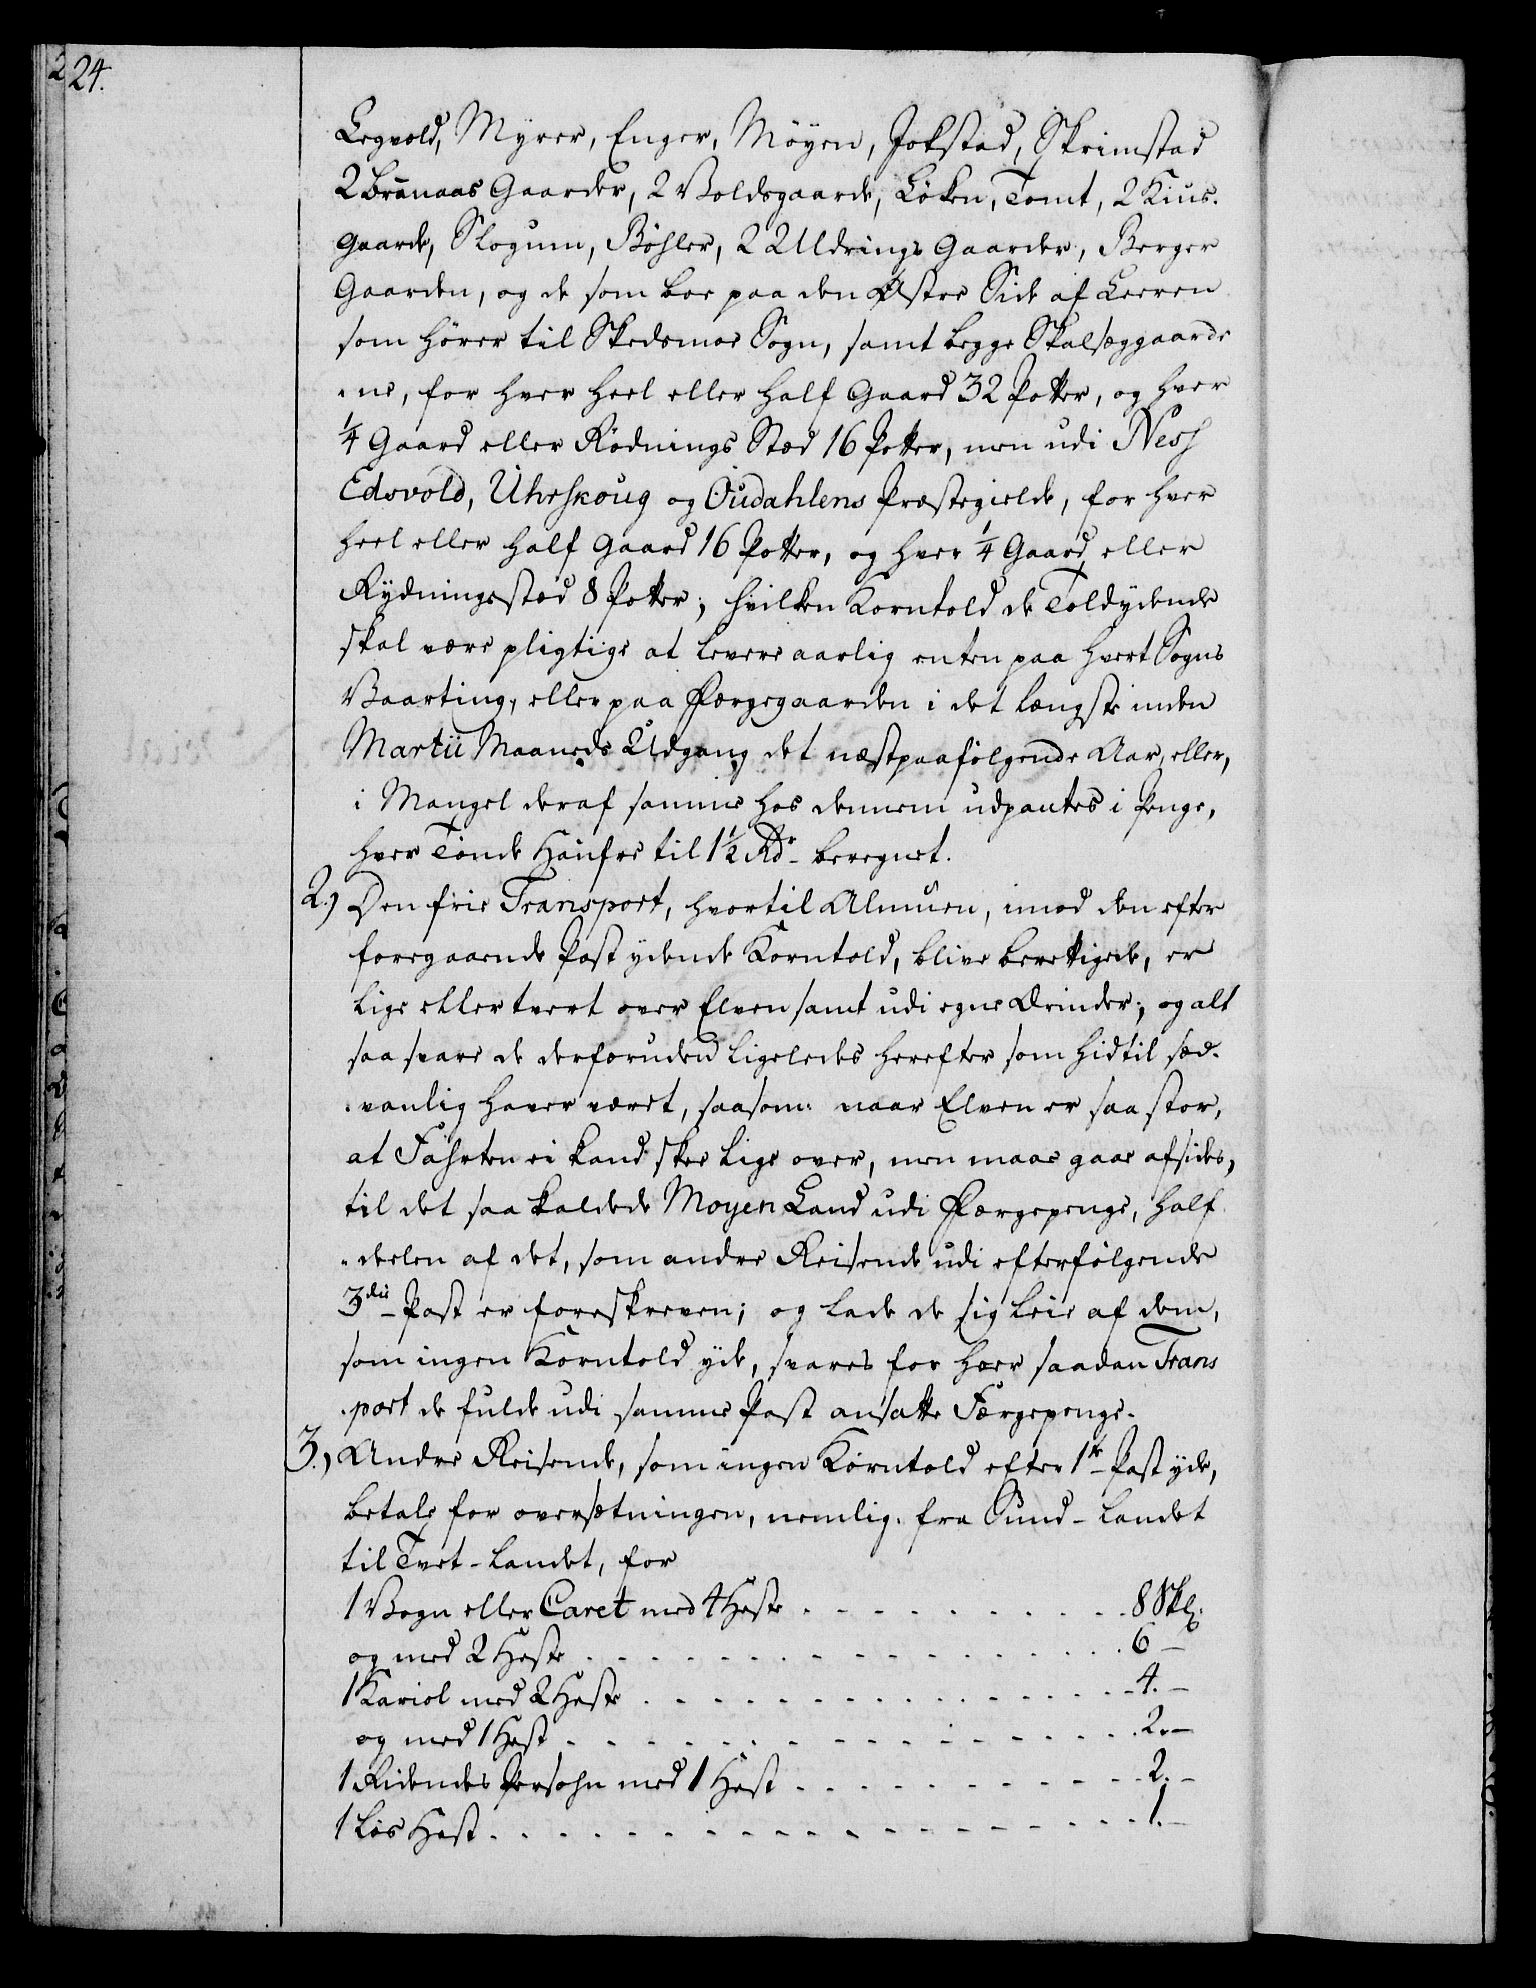 224.
Legvold, Myrer, Enger, Møyen, Jokstad, Skrimstad
2 Branaas Gaarder, 2 Voldsgaarde, Løken, Tomt, 2 Kius-
gaarde, Slogum, Bøhler, 2 Uldrings Gaarder, Berger
Gaarden, og de som boe paa den Østre Side af Leeren
som hører til Skedsmoe Sogn, samt begge Skalsæggaarde
-ne, for hver heel eller half Gaard 32 Potter, og hver
1/4 Gaard eller Rødnings Stæd 16 Potter, men udi Nes
Edsvold, Uhrskoug og Oudahlens Præstegielde, for hver
heel eller half Gaard 16 Potter, og hver 1/4 Gaard eller
Rydningsstæd 8 Potter; hvilken Korntold de Toldydende
skal være pligtige at levere aarlig enten paa hvert Sogns
Vaarting, eller paa Færgegaarden i det længste inden
Martii Maaneds Udgang det næstpaafølgende Aar, eller,
i Mangel deraf samme hos dennem udpantes i Penge,
hver Tønde Haufre til 1 1/2 Rdr beregnet.
2.) Den frie Transport, hvortil Almuen, imod den efter
foregaaende Post ydende Korntold, blive berettigede, er
lige eller tvert over Elven samt udi egne Ærinder; og alt
saa svare de derforuden ligeledes herefter som hidtil sæd-
-vanlig haver været, saasom naar Elven er saa stor,
at Fahrten ei kand skee lige over, men maae gaae afsides,
til det saa kaldede Moyen Land udi Færgepenge, half
-deelen af det, som andre Reisende udi efterfølgende
3die Post er foreskreven; og lade de sig leie af dem,
som ingen Korntold yde, svares for hver saadan Trans
-port de fulde udi samme Post ansatte Færgepenge.
3.) Andre Reisende, som ingen Korntold efter 1te Post yde,
betale for oversætningen, nemlig. fra Sund-Landet
til Tvet-Landet, for
1 Vogn eller Caret med 4 Heste - - - - - - - - - 8 Skl.
og med 2 Heste - - - - - - - - - 6 -
1 Kariol med 2 Heste - - - - - - - - - 4. -
og med 1 Hest - - - - - - - - - 2. -
1 Ridendes Persohn med 1 Hest - - - - - - - - - 2. -
1 Løs Hest - - - - - - - - - 1. -